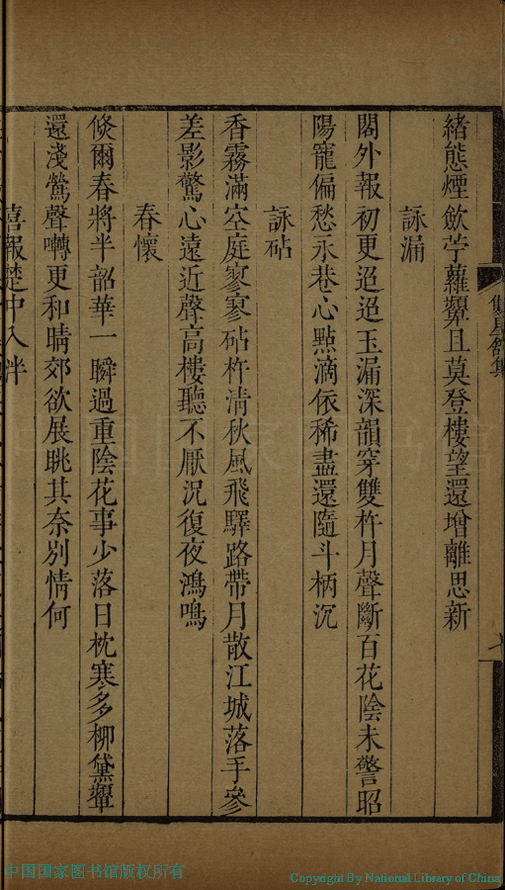 雙星館集
緒態煙歛苧蘿顰且莫登樓望還增離思新
詠漏
閣外報初更迢迢玉漏深韻穿雙杵月聲斷百花陰未警昭
陽寵偏愁永巷心點滴依稀盡還隨斗柄沉
詠砧
香霧滿空庭寥寥砧杵清秋風飛驛路帶月散江城落手參
差影驚心遠近聲高樓聽不厭況復夜鴻鳴
春懷
倐爾春將半韶華一瞬過重陰花事少落日枕寒多柳黛顰
還淺鶯聲囀更和晴郊欲展眺其奈別情何
喜報楚中入泮
中国国家图书馆版权所有
Copyright By National Library of China